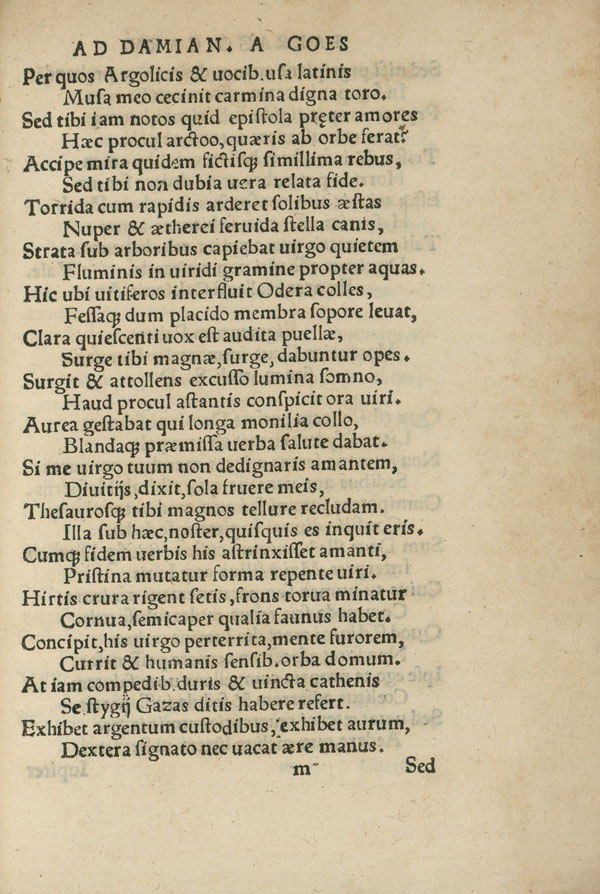 AD DAMIAN. A GOES
Per quos Argolicis & uocib. usa latinis
Musa meo cecinit carmina digna toro.
Sed tibi iam notos quid epistola pręter amores
Hæc procul arctoo, quæris ab orbe ferat?
Accipe mira quidem fictisq; simillima rebus,
Sed tibi non dubia uera relata fide.
Torrida cum rapidis arderet solibus æstas
Nuper & ætherei feruida stella canis,
Strata sub arboribus capiebat uirgo quietem
Fluminis in uiridi gramine propter aquas.
Hic ubi uitiferos interfluit Odera colles,
Fessaq; dum placido membra sopore leuat,
Clara quiescenti uox est audita puellæ,
Surge tibi magnæ, surge, dabuntur opes.
Surgit & attollens excusso lumina somno,
Haud procul astantis conspicit ora uiri.
Aurea gestabat qui longa monilia collo,
Blandaq; præmissa uerba salute dabat.
Si me uirgo tuum non dedignaris amantem,
Diuitijs, dixit, sola fruere meis,
Thesaurosq; tibi magnos tellure recludam.
Illa sub hæc, noster, quisquis es inquit eris.
Cumq; fidem uerbis his astrinxisset amanti,
Pristina mutatur forma repente uiri.
Hirtis crura rigent setis, frons torua minatur
Cornua, semicaper qualia faunus habet.
Concipit, his uirgo perterrita, mente furorem,
Currit & humanis sensib. orba domum.
At iam compedib. duris & uincta cathenis
Se stygij Gazas ditis habere refert.
Exhibet argentum custodibus, exhibet aurum,
Dextera signato nec uacat ære manus.
m Sed